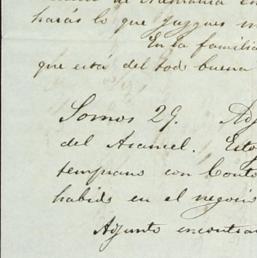 de Alemania en
harás lo que juzgues m
En la familia
que está del todo buena
Somos 29. Adj
del Asamel. Esto
temprano con Conto
habido en el negocio
Adjunto encontrar